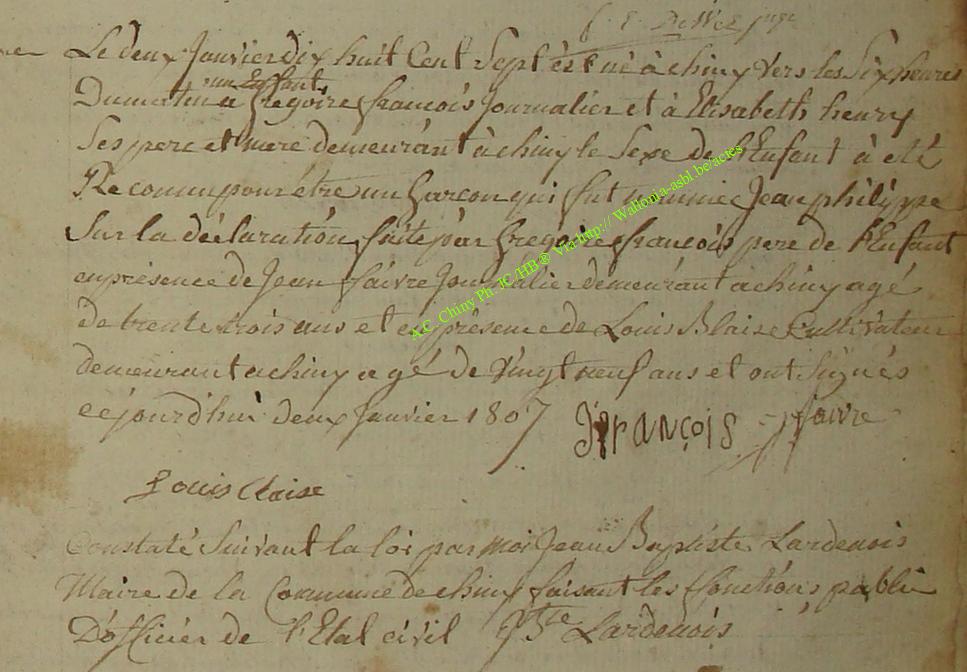 Le deux Janvier dix huit Cent Sept est né à chiny vers les Six heures
un Enfant
Du matin a gregoire françois Journalier et à Elisabeth henry
Ses pere et mere demeurant à chiny le Sexe de l'Enfant à eté
Reconnu pour être un garçon qui fut nommé Jean philippe
Sur la déclaration faite par gregoire françois pere de l'Enfant
en présence de Jean faivre Journalier demeurant a chiny agé
de trente trois ans et en présence de Louis Blaise Cultivateur
demeurant a chiny agé de vingt neuf ans et ont Signés
cejourd'hui deux Janvier 1807 françois faivre
Louis Claise
Constaté Suivant la loi par moi Jean Baptiste Lardenois
Maire de la Commune de chiny faisant les fonctions public
D'officier de l'Etat civil JBte Lardenois
A.C. Chiny Ph. JC/HB @ Via-http://Wallonia-asbl.be/actes